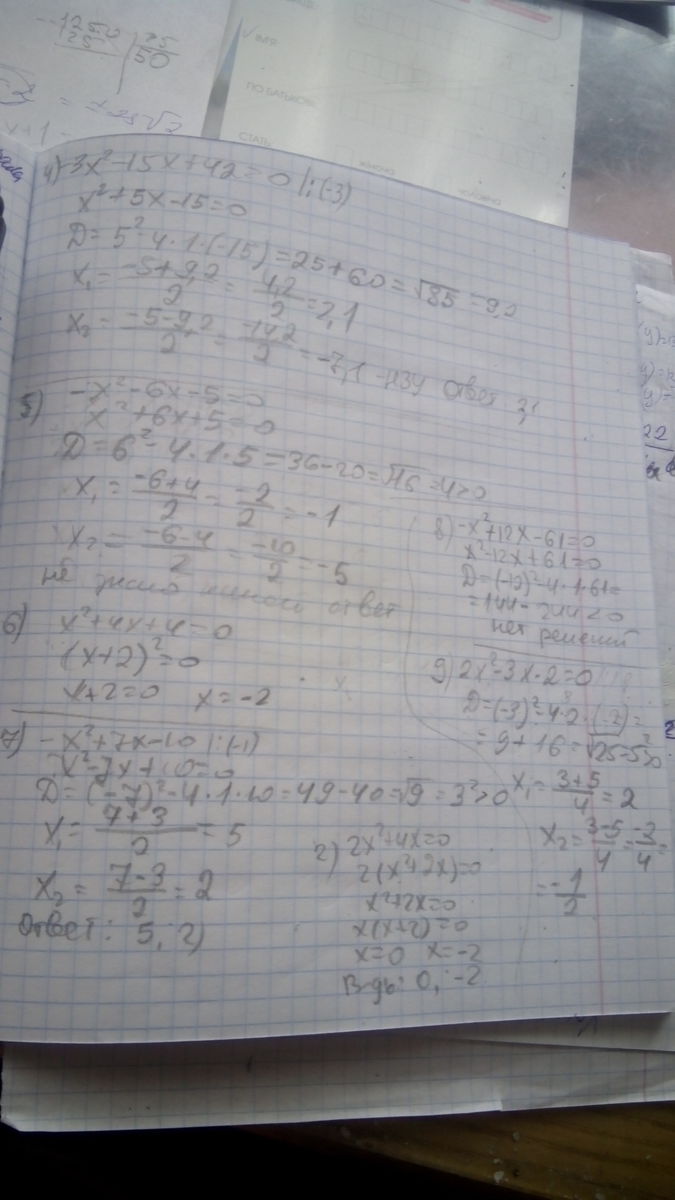 -125,0
25
50
x+1 -
ІМ'Я:
ПО БАТЬКОВІ:
СТАТЬ:
жіноча
чоловіча
4) -3x²-15x+42=0 |:(-3)
x²+5x-15=0
D=5²-4·1·(-15)=25+60=√85=9,2
x₁=(-5+9,2)/2=4,2/2=2,1
x₂=(-5-9,2)/2=-14,2/2=-7,1
5) -x²-6x-5=0
x²+6x+5=0
D=6²-4·1·5=36-20=√16=4>0
x₁=(-6+4)/2=-2/2=-1
x₂=(-6-4)/2=-10/2=-5
не знаю ответ
6) x²+4x+4=0
(x+2)²=0
x+2=0 x=-2
7) -x²+7x-10 |:(-1)
x²-7x+10=0
D=(-7)²-4·1·10=49-40=√9=3²>0
x₁=(7+3)/2=5
x₂=(7-3)/2=2
Ответ: 5, 2)
8) -x²+12x-61=0
x²-12x+61=0
D=(-12)²-4·1·61=
=144-244<0
нет решений
9) 2x²-3x-2=0
D=(-3)²-4·2·(-2)=
=9+16=√25=5²>0
x₁=(3+5)/4=2
x₂=(3-5)/4=-2/4=
=-1/2
2) 2x²+4x=0
2(x²+2x)=0
x²+2x=0
x(x+2)=0
x=0 x=-2
В-дь: 0, -2